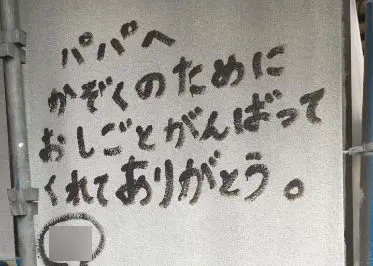 パパへ
かぞくのために
おしごとがんばって
くれてありがとう。